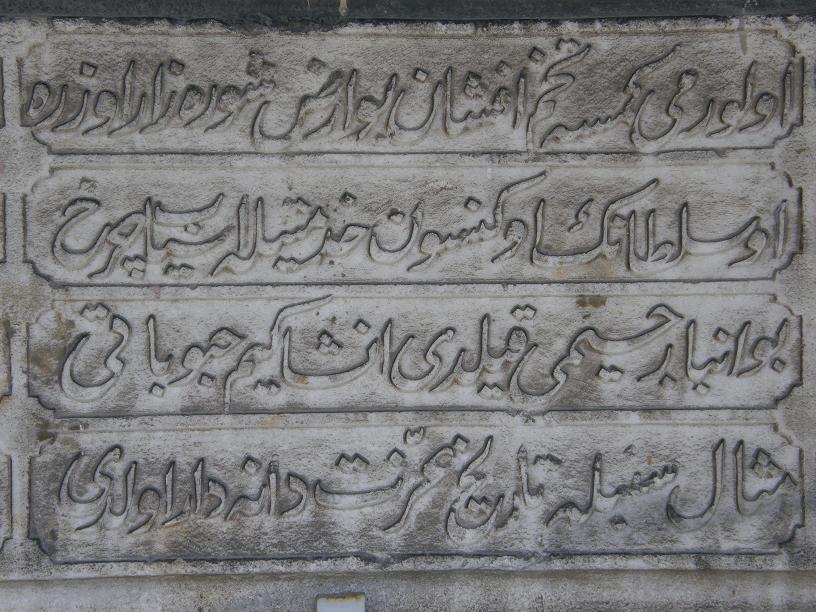 اولورمی کمسه تخم افشان بو ارض شوره زار اوزره
او سلطانك اوکنسون خدمتیله آسیاء چرخ
بو انبار جسیمی قیلدی انشا کیم حبوباتی
مثال سنبله تاریخ عزّت دانه دار اولدی